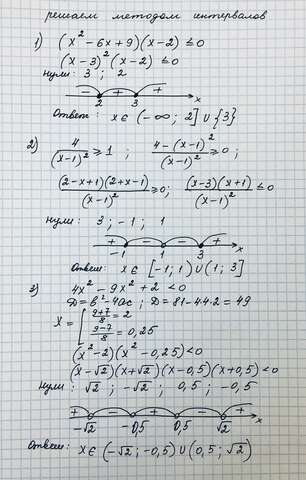 решаем методом интервалов
1) (x² - 6x + 9)(x - 2) ≤ 0
(x - 3)²(x - 2) ≤ 0
Нули: 3 ; 2
- + +
2 3 x
Ответ: x ∈ (-∞; 2] ∪ {3}
2) 4/(x-1)² ≥ 1 ; (4-(x-1)²)/(x-1)² ≥ 0 ;
((2-x+1)(2+x-1))/(x-1)² ≥ 0; ((x-3)(x+1))/(x-1)² ≤ 0
Нули: 3 ; -1 ; 1
+ - - +
-1 1 3 x
Ответ: x ∈ [-1; 1) ∪ (1; 3]
3) 4x⁴ - 9x² + 2 < 0
D = b² - 4ac ; D = 81 - 4·4·2 = 49
X = [ (9+7)/8 = 2
(9-7)/8 = 0,25
(x² - 2)(x² - 0,25) < 0
(x - √2)(x + √2)(x - 0,5)(x + 0,5) < 0
Нули: √2 ; -√2 ; 0,5 ; -0,5
+ - + - +
-√2 -0,5 0,5 √2 x
Ответ: x ∈ (-√2; -0,5) ∪ (0,5; √2)